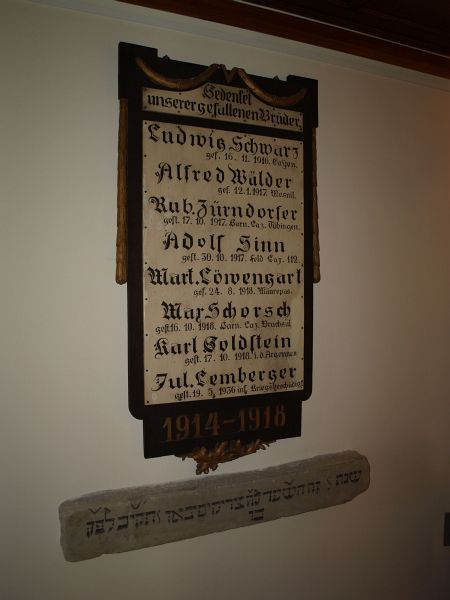 Gedenket
unserer gefallenen Brüder,
Ludwig Schwarz
gef. 16. 11. 1916.
Alfred Wälder
gef. 12.1.1917. Mesnil.
Rub. Zürndorfer
gest. 17. 10. 1917. Garn. Laz. Tübingen.
Adolf Sinn
gest. 30. 10. 1917. Feld Laz. 112.
Mart. Löwengart
gef. 24. 8. 1918. Maurepas.
Max Schorsch
gest. 16. 10. 1918. Garn. Laz. Bruchsal
Karl Goldstein
gest. 17. 10. 1918. i. d. Argonnen
Jul. Lemberger
gest. 19. 5. 1936 inf.
1914-1918
שנת זה השער צדיקים יבאו לפ״ק
בו